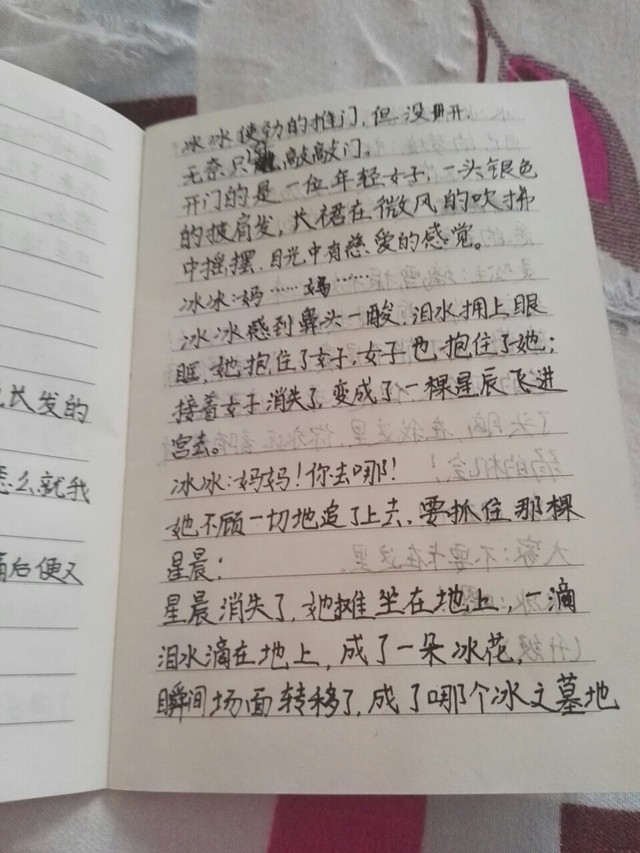 长发的
怎么就我
后便又
冰冰使劲的推门,但没开.
无奈只敲敲门。
开门的是一位年轻女子,一头银色
的披肩发,长裙在微风的吹拂
中摇摆.目光中有慈爱的感觉。
冰冰:妈……妈……
冰冰感到鼻头一酸.泪水拥上眼
眶,她抱住了女子,女子也抱住了她;
接着女子消失了,变成了一棵星辰飞进
宫去。
冰冰:妈妈!你去哪!
她不顾一切地追了上去,要抓住那棵
星晨;
星晨消失了,她摊坐在地上,一滴
泪水滴在地上,成了一朵冰花,
瞬间场面转移了,成了哪个冰文墓地